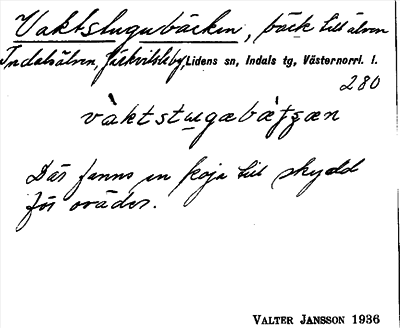 Vaktstugubäcken, bäck till älven
Indalsälven, Lidens sn, Indals tg, Västernorrl. l.
280
vàktstɯgæbæ̀ƭʂæn
Där fanns en koja till skydd
för oväder.
VALTER JANSSON 1936